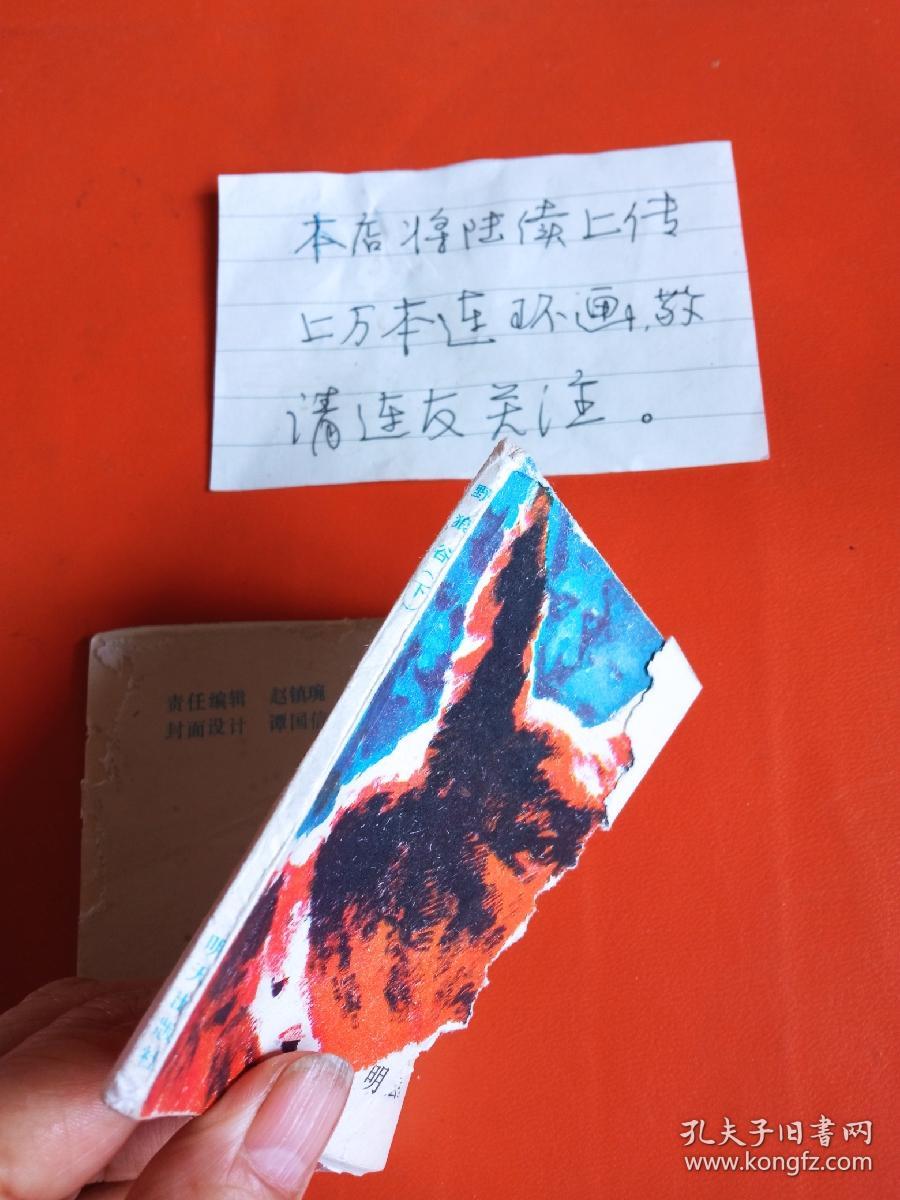 本店将陆续上传
上万本连环画,敬
请连友关注。
野狼谷(下)
明天出版社
责任编辑 赵镇琬
封面设计 谭国信
明
孔夫子旧书网
www.kongfz.com